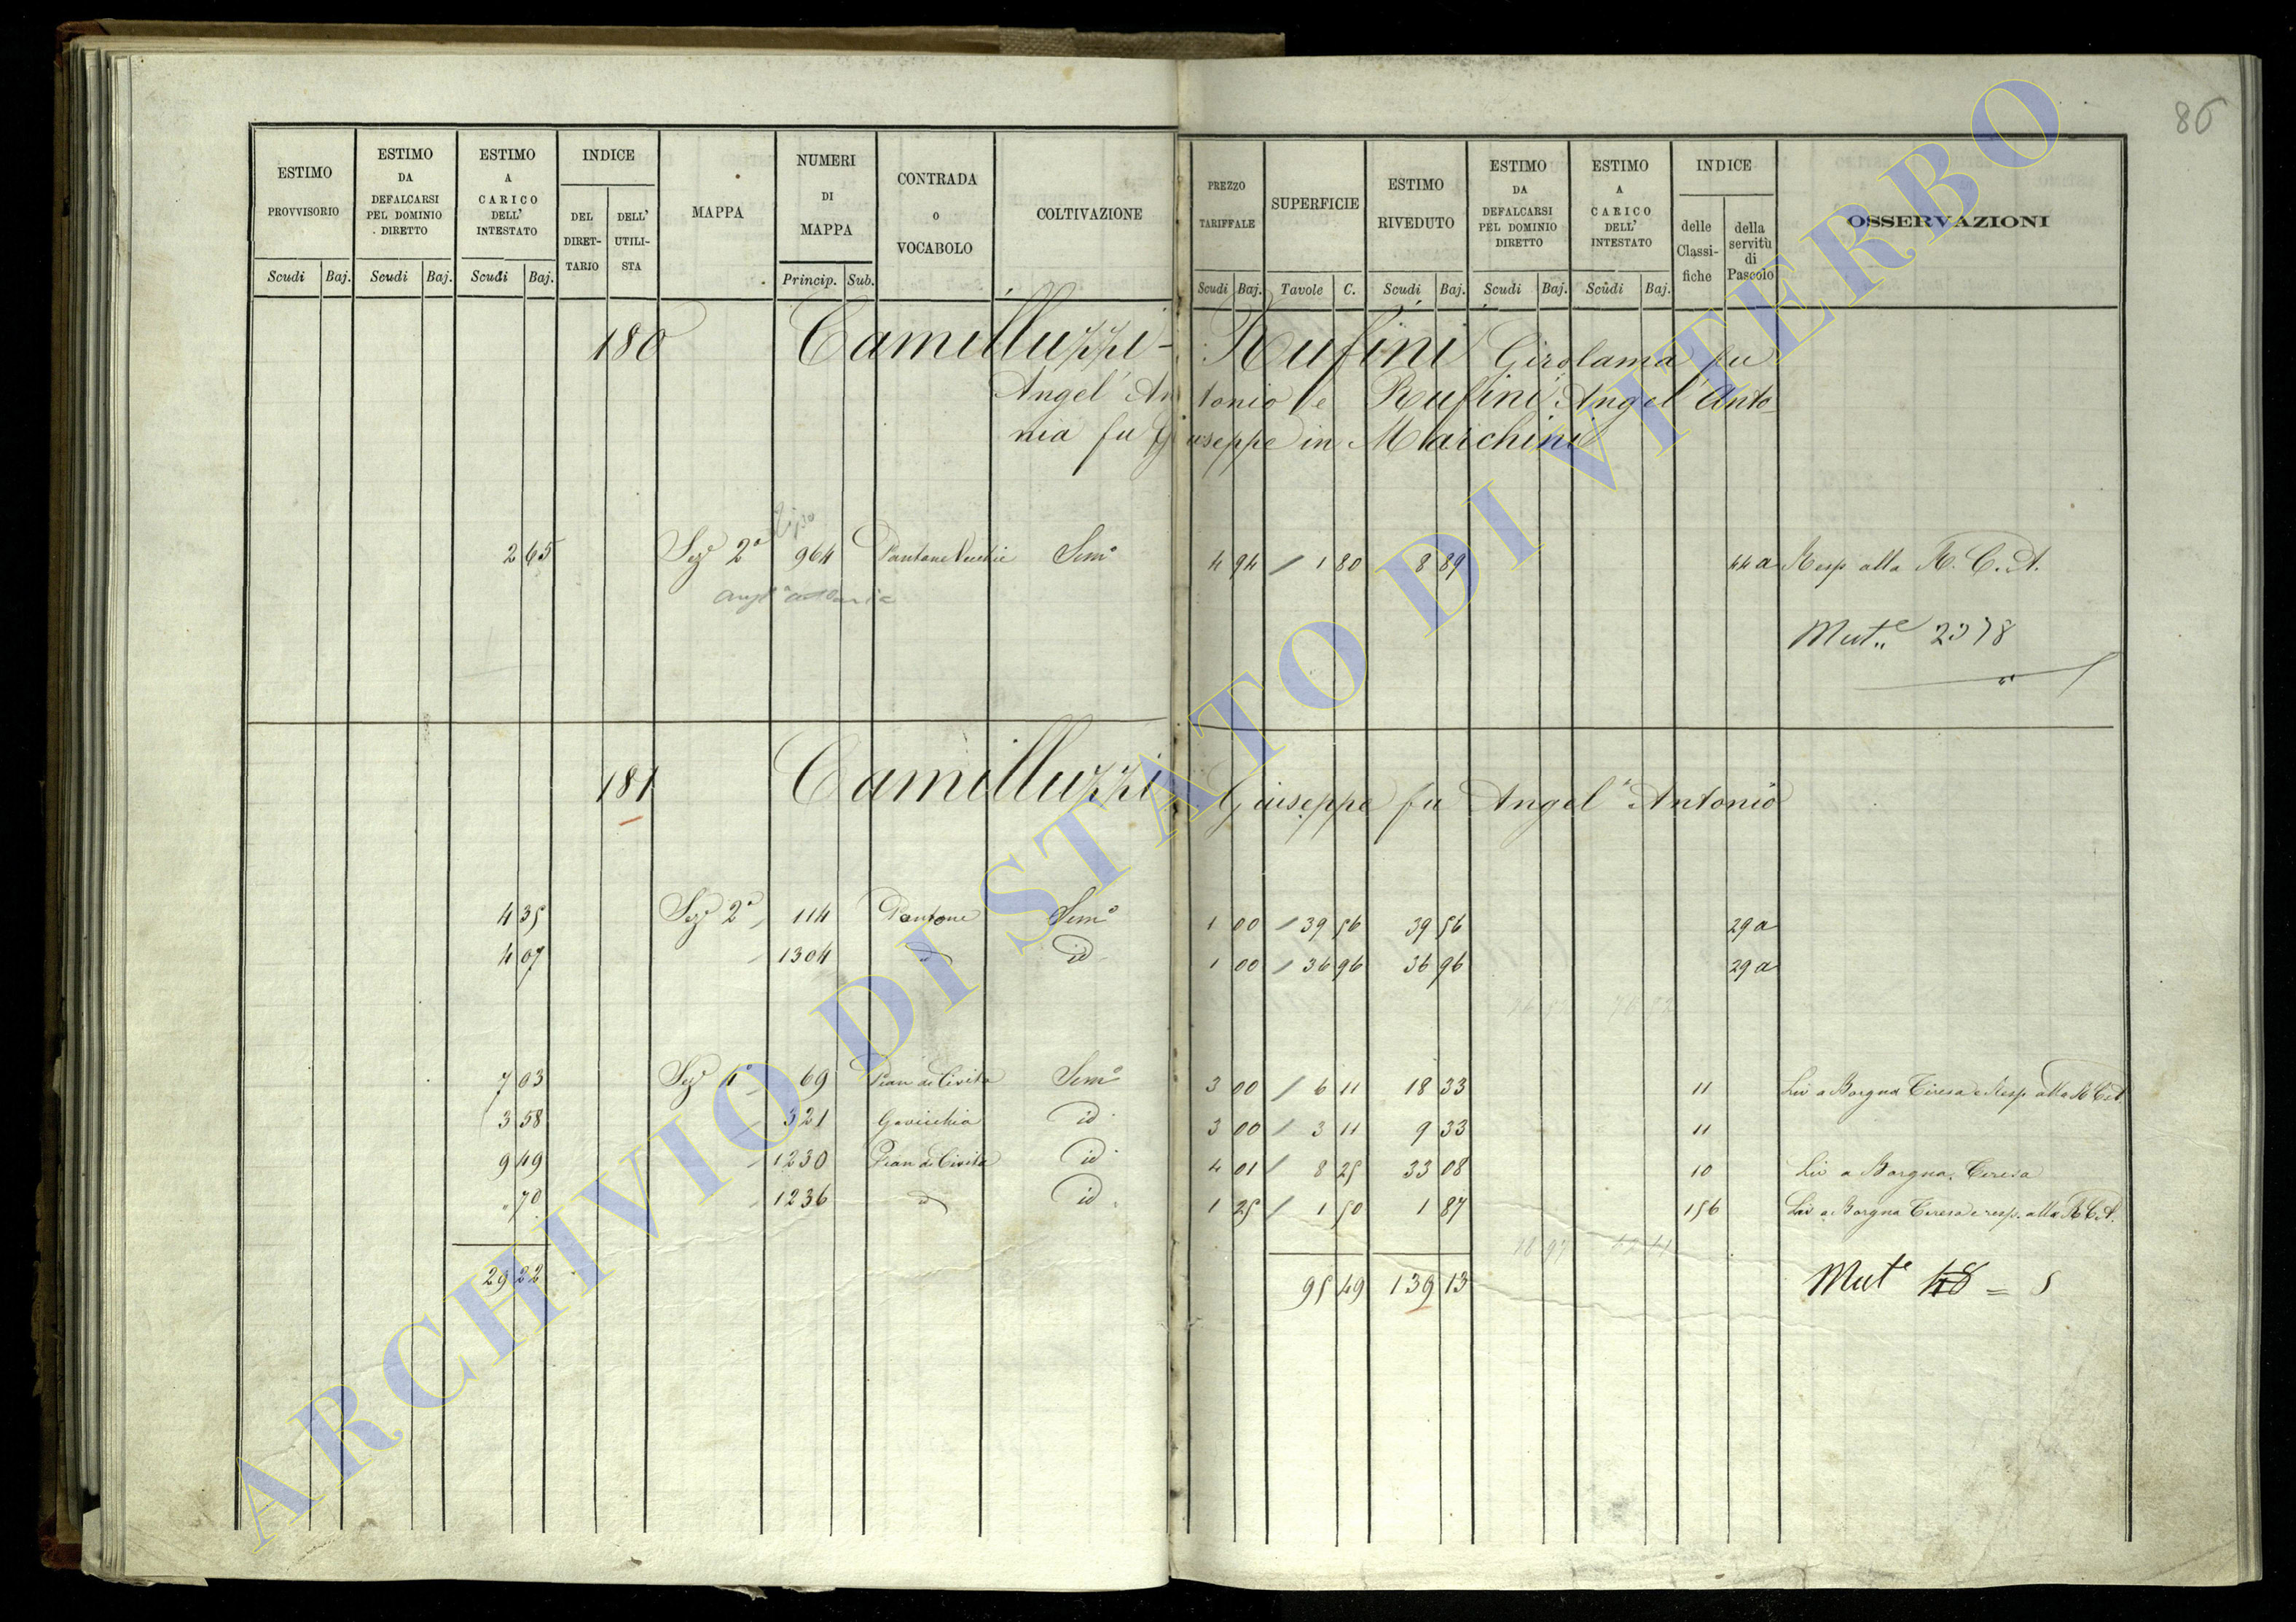 86
ESTIMO PROVVISORIO Scudi Baj.
ESTIMO DA DEFALCARSI PEL DOMINIO DIRETTO Scudi Baj.
ESTIMO A CARICO DELL' INTESTATO Scudi Baj.
INDICE DEL DIRETTARIO DELL' UTILISTA
MAPPA
NUMERI DI MAPPA Princip. Sub.
CONTRADA O VOCABOLO
COLTIVAZIONE
PREZZO TARIFFALE Scudi Baj.
SUPERFICIE Tavole C.
ESTIMO RIVEDUTO Scudi Baj.
ESTIMO DA DEFALCARSI PEL DOMINIO DIRETTO Scudi Baj.
ESTIMO A CARICO DELL' INTESTATO Scudi Baj.
INDICE delle Classifiche della servitù di Pascolo
OSSERVAZIONI
180 Camilluzzi - Rufini Girolama fu
Angel' Antonio e Rufini Angel' Anto
nia fu Giuseppe in Marchini
2 65 Sez.e 2a 964 Pantane Sem.o 4 94 / 1 80 8 89 44 a Resp alla R. C. A.
Mut.e 2378
181 Camilluzzi Giuseppe fu Angel' Antonio
4 35 Sez.e 2a 114 Pantane Sem.o 1 00 / 39 56 39 56 29 a
4 07 1304 id id 1 00 / 36 96 36 96 29 a
7 03 Sez.e 4a 69 Pian di Civita Sem.o 3 00 / 6 11 18 33 11 Liv a Borgna Teresa e Resp. alla R C A
3 58 321 id 3 00 / 3 11 9 33 11
9 49 1230 Pian di Civita id 4 01 / 8 25 33 08 10 Liv a Borgna Teresa
" 70 1236 id id 1 25 / 1 50 1 87 156 Liv a Borgna Teresa e resp. alla R C A.
29 22 95 49 139 13 Mut.e 48 = 5
ARCHIVIO DI STATO DI VITERBO